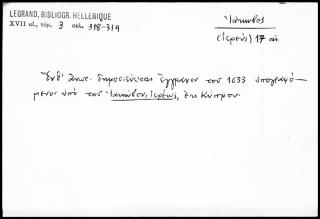 LEGRAND, BIBLIOGR. HELLENIQUE
XVII αἰ., τόμ. 3 σελ. 318-319
Ἰάκωβος
(ἱερεύς) 17 αἰ.
Ἔνθ' ἀνωτ. δημοσιεύεται ἔγγραφον τοῦ 1633 ὑπογραφό-
μενον ὑπὸ τοῦ Ἰακώβου, ἱερέως, ἐκ Κύπρου.